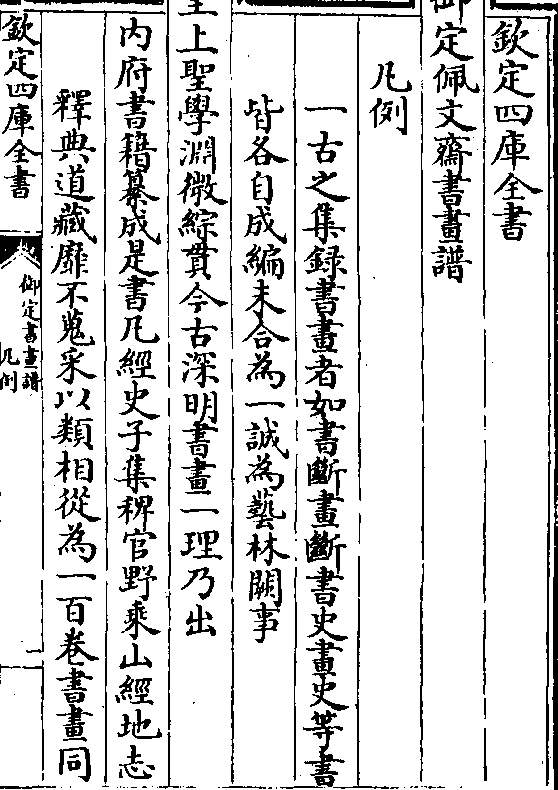 欽定四庫全書
御定佩文齋書畫譜
凡例
一古之集録書畫者如書斷畫斷書史畫史等書
皆各自成編未合為一誠為藝林闕事
聖學淵微綜貫今古深明書畫一理乃出
内府書籍纂成是書凡經史子集稗官野乘山經地志
釋典道藏靡不蒐采以類相從為一百卷書畫同
欽定四庫全書
御定書畫譜
凡例